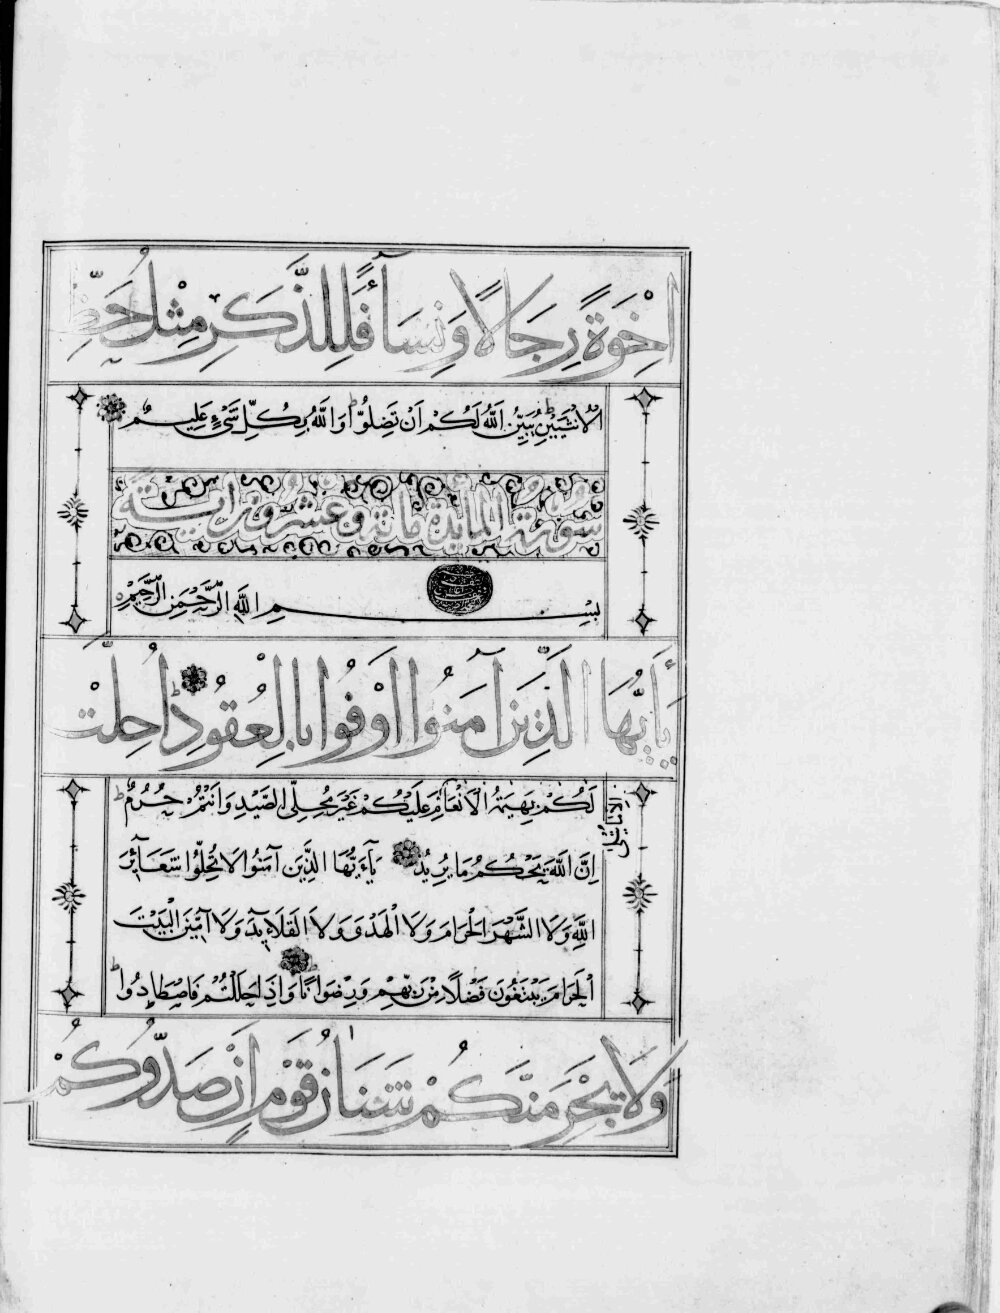 اِخْوَةً رِجَالًا وَنِسَآءً فَلِلذَّكَرِ مِثْلُ حَظِّ
الْاُنْثَيَيْنِ يُبَيِّنُ اللّٰهُ لَكُمْ اَنْ تَضِلُّوا وَاللّٰهُ بِكُلِّ شَيْءٍ عَلِيمٌ
سُورَةُ الْمَائِدَةِ مائة وعشرون اية
بِسْمِ اللّٰهِ الرَّحْمٰنِ الرَّحِيمِ
يَآ اَيُّهَا الَّذِينَ آمَنُوا اَوْفُوا بِالْعُقُودِ اُحِلَّتْ
لَكُمْ بَهِيمَةُ الْاَنْعَامِ عَلَيْكُمْ غَيْرَ مُحِلِّي الصَّيْدِ وَاَنْتُمْ حُرُمٌ
اِلَّا مَا يُتْلٰى
اِنَّ اللّٰهَ يَحْكُمُ مَا يُرِيدُ يَآ اَيُّهَا الَّذِينَ آمَنُوا لَا تُحِلُّوا شَعَآئِرَ
اللّٰهِ وَلَا الشَّهْرَ الْحَرَامَ وَلَا الْهَدْيَ وَلَا الْقَلَآئِدَ وَلَا آمِّينَ الْبَيْتَ
الْحَرَامَ يَبْتَغُونَ فَضْلًا مِنْ رَبِّهِمْ وَرِضْوَانًا وَاِذَا حَلَلْتُمْ فَاصْطَادُوا
وَلَا يَجْرِمَنَّكُمْ شَنَاٰنُ قَوْمٍ اَنْ صَدُّوكُمْ